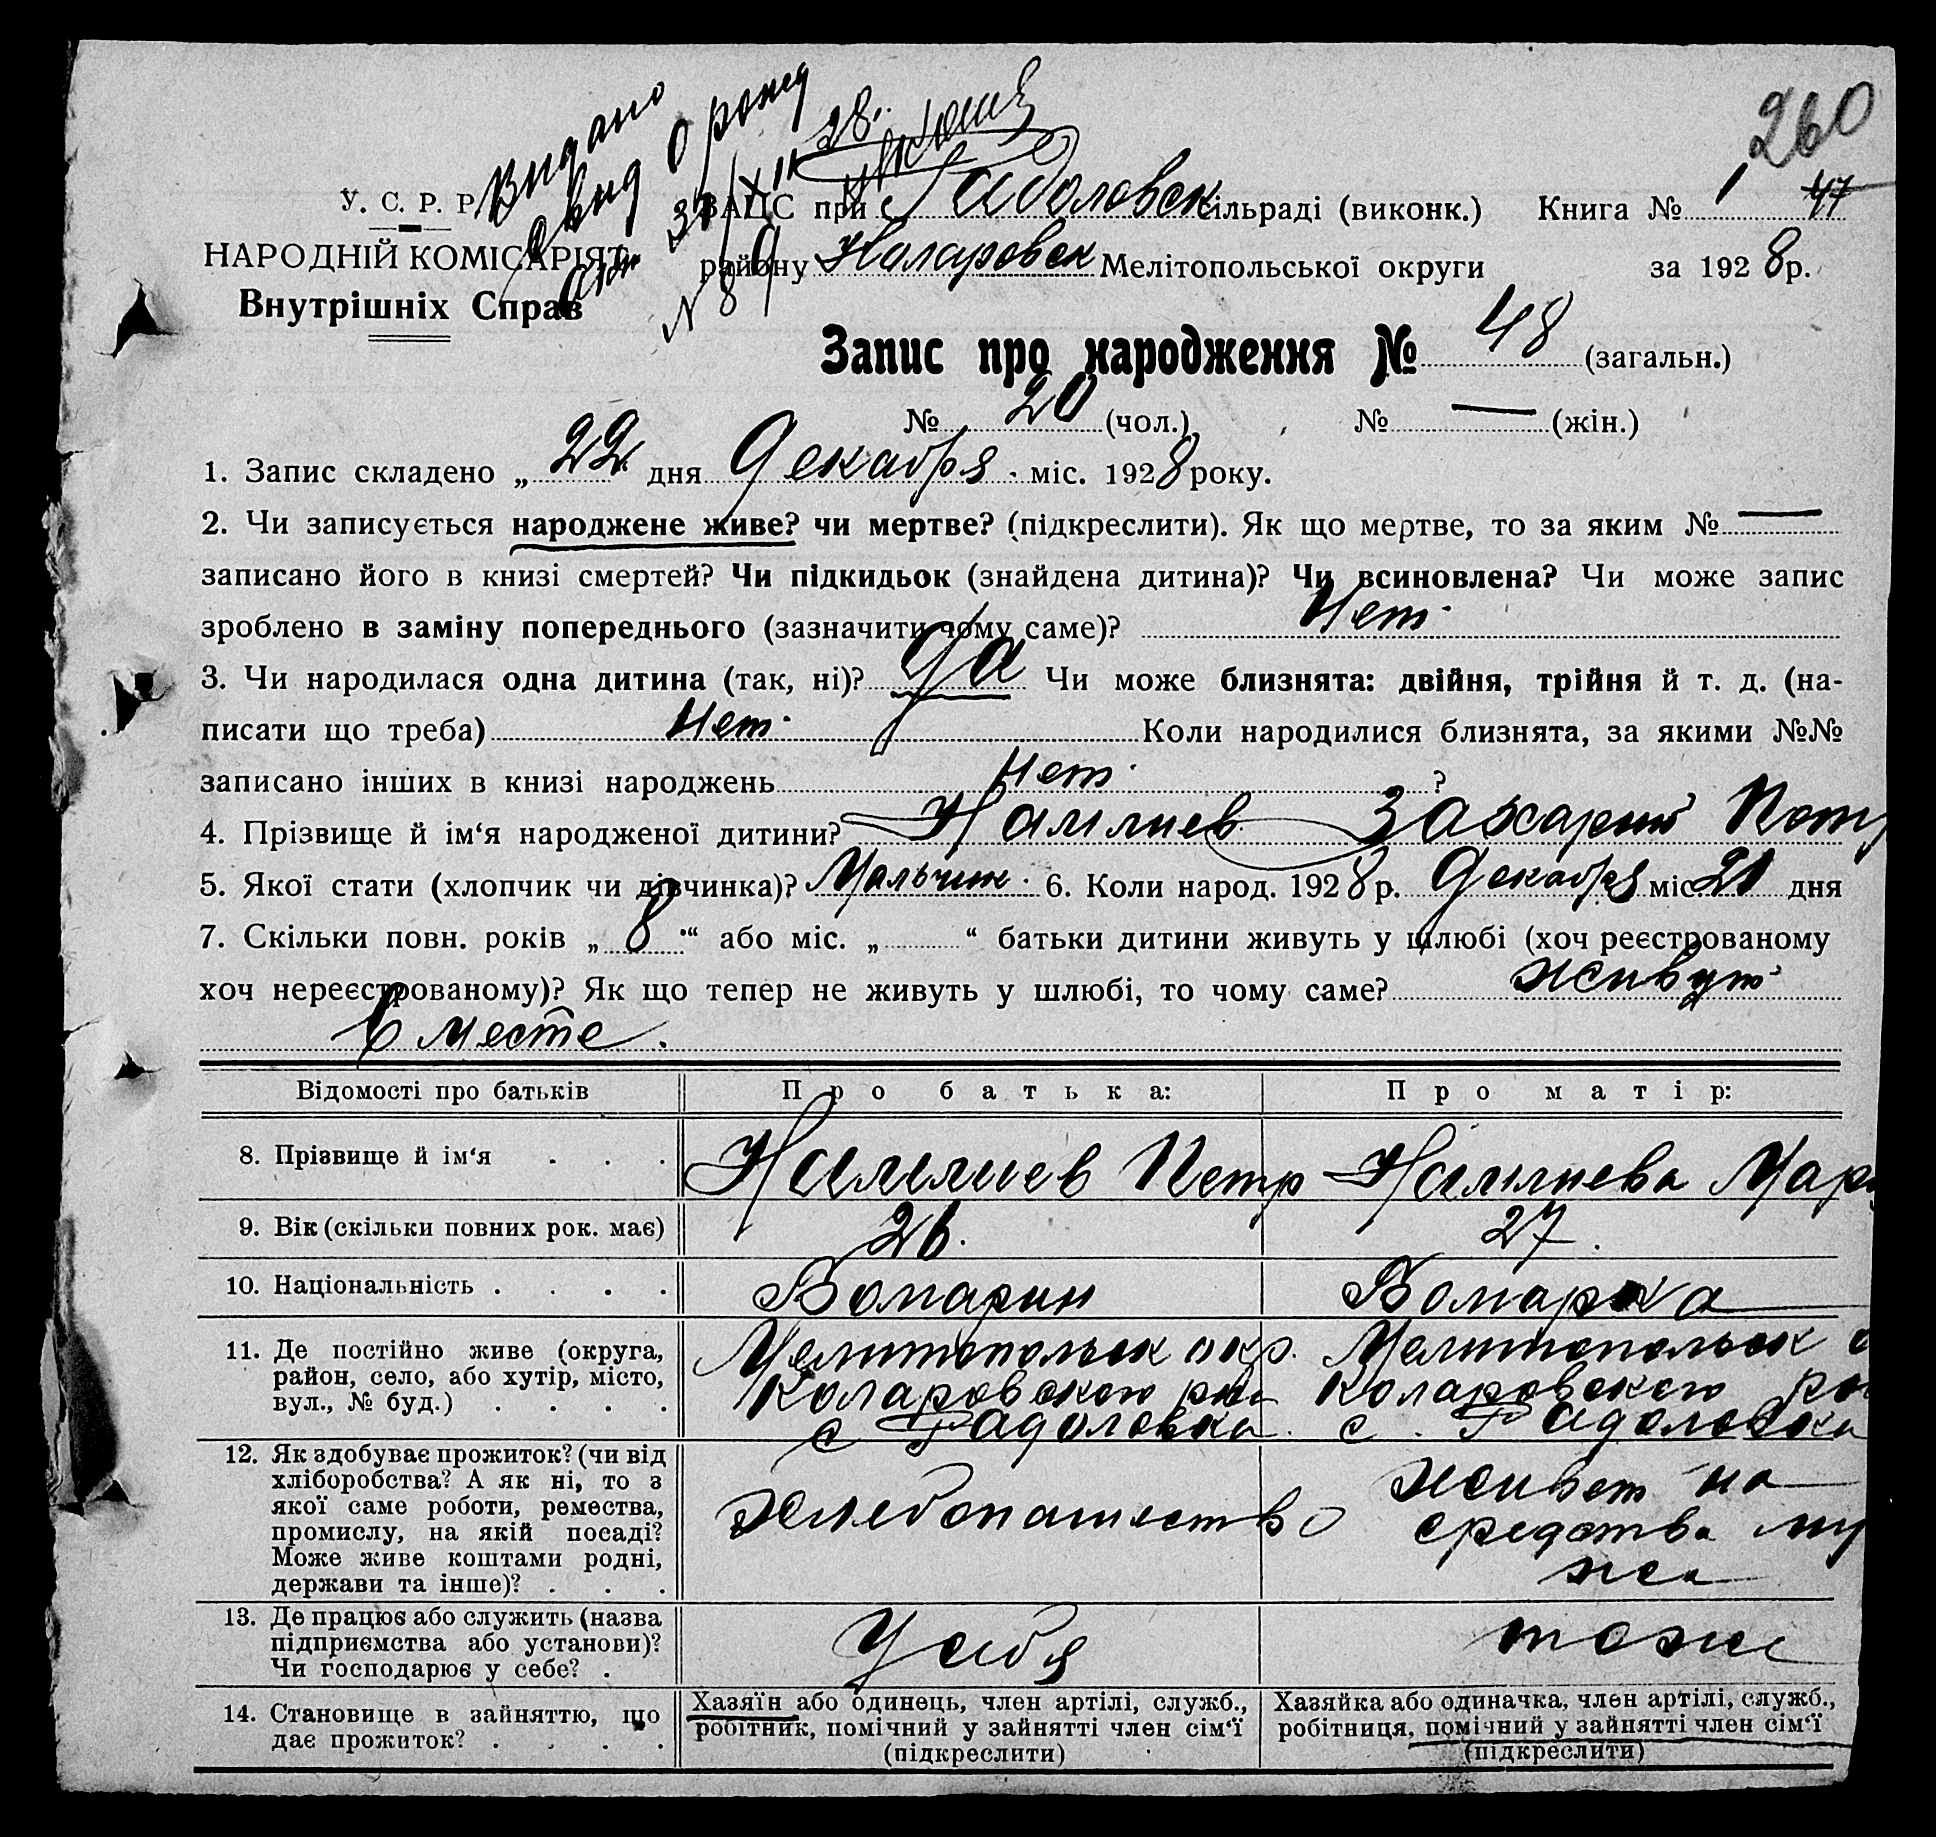 Видано
свид о рожд
31/XII 28.
№ 8
260
У. С. Р. Р.
НАРОДНІЙ КОМІСАРІЯТ
Внутрішніх Справ
ЗАЦС при Радоловск сільраді (виконк.) Книга № 1 47
району Коларовск Мелітопольської округи за 1928 р.
Запис про народження № 48 (загальн.)
№ 20 (чол.) № — (жін.)
1. Запис складено „ 22 дня Декабря міс. 1928 року.
2. Чи записується народжене живе? чи мертве? (підкреслити). Як що мертве, то за яким № —
записано його в книзі смертей? Чи підкидьок (знайдена дитина)? Чи всиновлена? Чи може запис
зроблено в заміну попереднього (зазначити чому саме)? Нет
3. Чи народилася одна дитина (так, ні)? Да Чи може близнята: двійня, трійня й т. д. (на-
писати що треба) Нет Коли народилися близнята, за якими №№
записано інших в книзі народжень нет ?
4. Прізвище й ім‘я народженої дитини? Захарий Петр
5. Якої стати (хлопчик чи дівчинка)? Мальчик 6. Коли народ. 1928 р. Декабря міс. 21 дня
7. Скільки повн. років „ 8 “ або міс. „ “ батьки дитини живуть у шлюбі (хоч реєстрованому
хоч нереєстрованому)? Як що тепер не живуть у шлюбі, то чому саме? живут
вместе.
Відомості про батьків Про батька: Про матір:
8. Прізвище й ім‘я . . . Петр Мари
9. Вік (скільки повних рок. має) 26. 27.
10. Національність . . . . Болгарин Болгарка
11. Де постійно живе (округа, Мелитопольск окр. Мелитопольск о
район, село, або хутір, місто, Коларовского рна Коларовского ра
вул., № буд.) . . . . с Радоловка. с. Радоловка
12. Як здобуває прожиток? (чи від
хліборобства? А як ні, то з живет на
якої саме роботи, ремества, хлебопашество средства му
промислу, на якій посаді?
Може живе коштами родні, жа
держави та інше)? . . .
13. Де працює або служить (назва
підприємства або установи)? У себя тоже
Чи господарює у себе? .
14. Становище в зайняттю, що Хазяїн або одинець, член артілі, служб., Хазяйка або одиначка, член артілі, служб.,
дає прожиток? . . . . робітник, помічний у зайнятті член сім‘ї робітниця, помічний у зайнятті член сім‘ї
(підкреслити) (підкреслити)